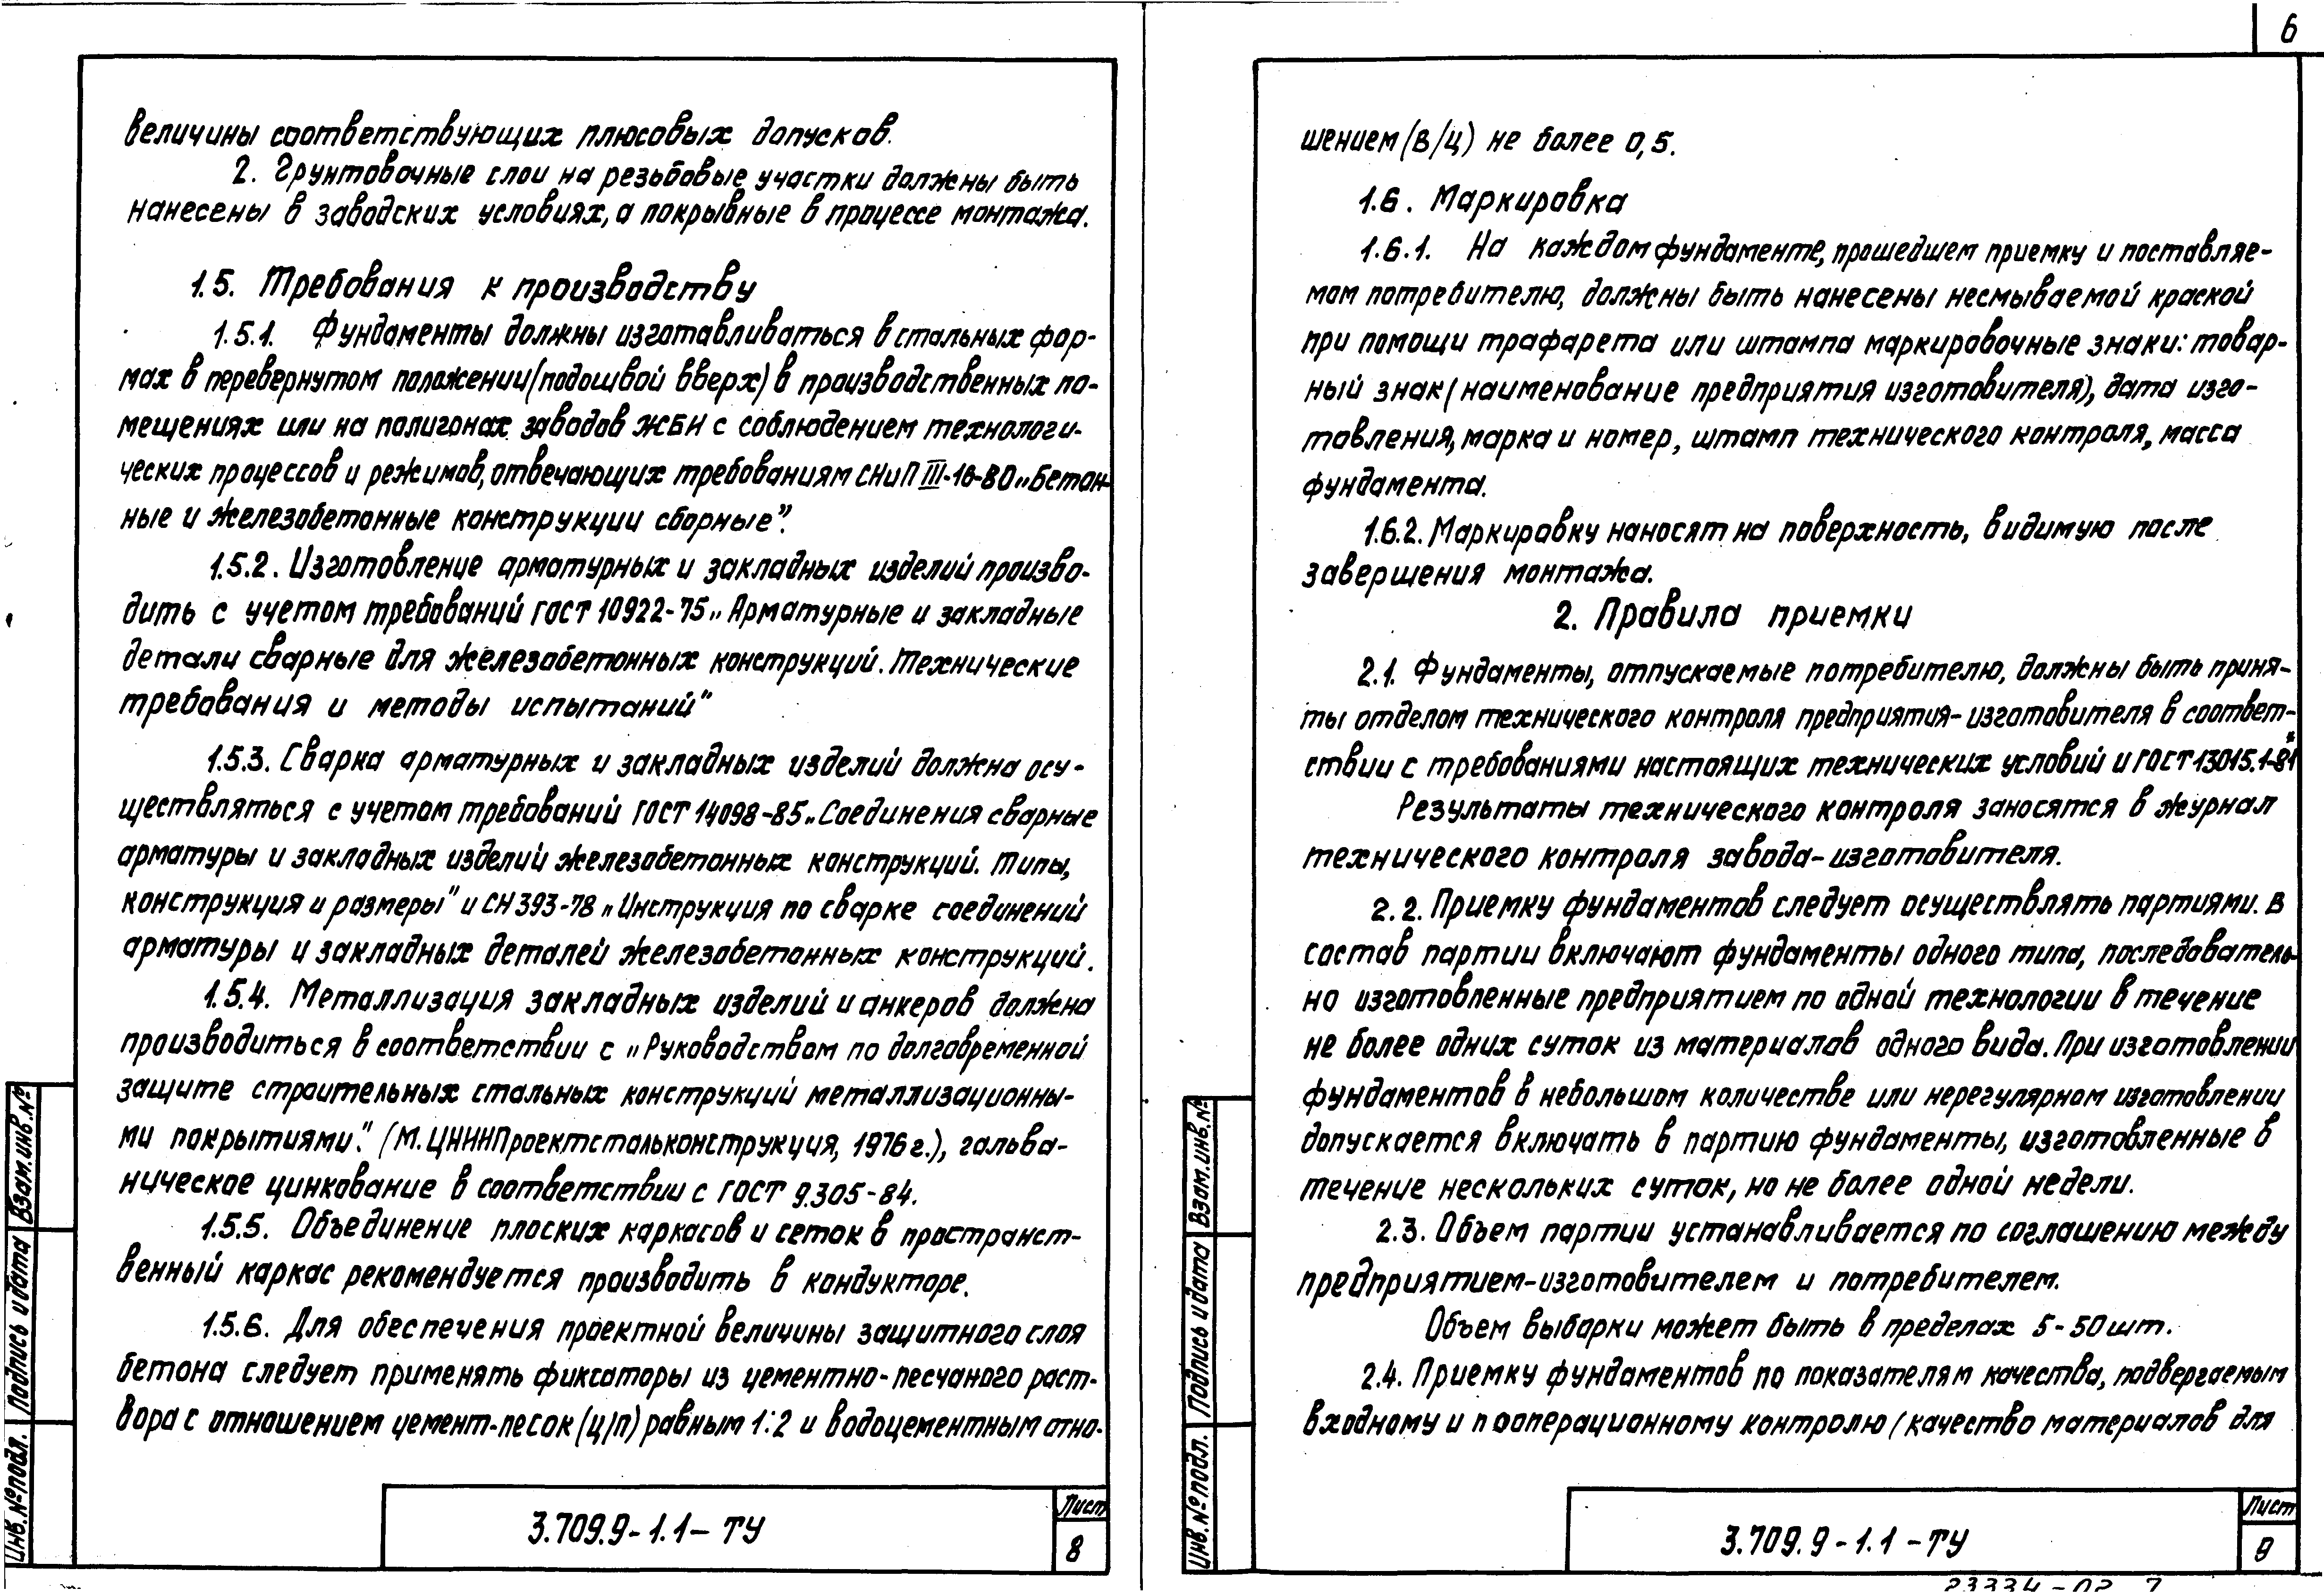 6
величины соответствующих плюсовых допусков.
2. Грунтовочные слои на резьбовые участки должны быть
нанесены в заводских условиях, а покрывные в процессе монтажа.
1.5. Требования к производству
1.5.1. Фундаменты должны изготавливаться в стальных фор-
мах в перевернутом положении (подошвой вверх) в производственных по-
мещениях или на полигонах заводов ЖБИ с соблюдением технологи-
ческих процессов и режимов, отвечающих требованиям СНиП III-16-80 „Бетон-
ные и железобетонные конструкции сборные".
1.5.2. Изготовление арматурных и закладных изделий произво-
дить с учетом требований ГОСТ 10922-75 „Арматурные и закладные
детали сварные для железобетонных конструкций. Технические
требования и методы испытаний"
1.5.3. Сварка арматурных и закладных изделий должна осу-
ществляться с учетом требований ГОСТ 14098-85 „Соединения сварные
арматуры и закладных изделий железобетонных конструкций. Типы,
конструкция и размеры" и СН 393-78 „Инструкция по сварке соединений
арматуры и закладных деталей железобетонных конструкций.
1.5.4. Металлизация закладных изделий и анкеров должна
производиться в соответствии с „Руководством по долговременной
защите строительных стальных конструкций металлизационны-
ми покрытиями". (М. ЦНИИПроектстальконструкция, 1976 г.), гальва-
ническое цинкование в соответствии с ГОСТ 9.305-84.
1.5.5. Объединение плоских каркасов и сеток в пространст-
венный каркас рекомендуется производить в кондукторе.
1.5.6. Для обеспечения проектной величины защитного слоя
бетона следует применять фиксаторы из цементно-песчаного раст-
вора с отношением цемент-песок (ц/п) равным 1:2 и водоцементным отно-
Взам. инв. №
Подпись и дата
Инв. № подл.
3.709.9-1.1-ТУ
Лист
8
шением (в/ц) не более 0,5.
1.6. Маркировка
1.6.1. На каждом фундаменте, прошедшем приемку и поставляе-
мом потребителю, должны быть нанесены несмываемой краской
при помощи трафарета или штампа маркировочные знаки: товар-
ный знак (наименование предприятия изготовителя), дата изго-
товления, марка и номер, штамп технического контроля, масса
фундамента.
1.6.2. Маркировку наносят на поверхность, видимую после
завершения монтажа.
2. Правила приемки
2.1. Фундаменты, отпускаемые потребителю, должны быть приня-
ты отделом технического контроля предприятия-изготовителя в соответ-
ствии с требованиями настоящих технических условий и ГОСТ 13015.1-81*
Результаты технического контроля заносятся в журнал
технического контроля завода-изготовителя.
2.2. Приемку фундаментов следует осуществлять партиями. В
состав партии включают фундаменты одного типа, последователь-
но изготовленные предприятием по одной технологии в течение
не более одних суток из материалов одного вида. При изготовлении
фундаментов в небольшом количестве или нерегулярном изготовлении
допускается включать в партию фундаменты, изготовленные в
течение нескольких суток, но не более одной недели.
2.3. Объем партии устанавливается по соглашению между
предприятием-изготовителем и потребителем.
Объем выборки может быть в пределах 5-50 шт.
2.4. Приемку фундаментов по показателям качества, подвергаемым
входному и пооперационному контролю (качество материалов для
Взам. инв. №
Подпись и дата
Инв. № подл.
3.709.9-1.1-ТУ
Лист
9
23334-02 7